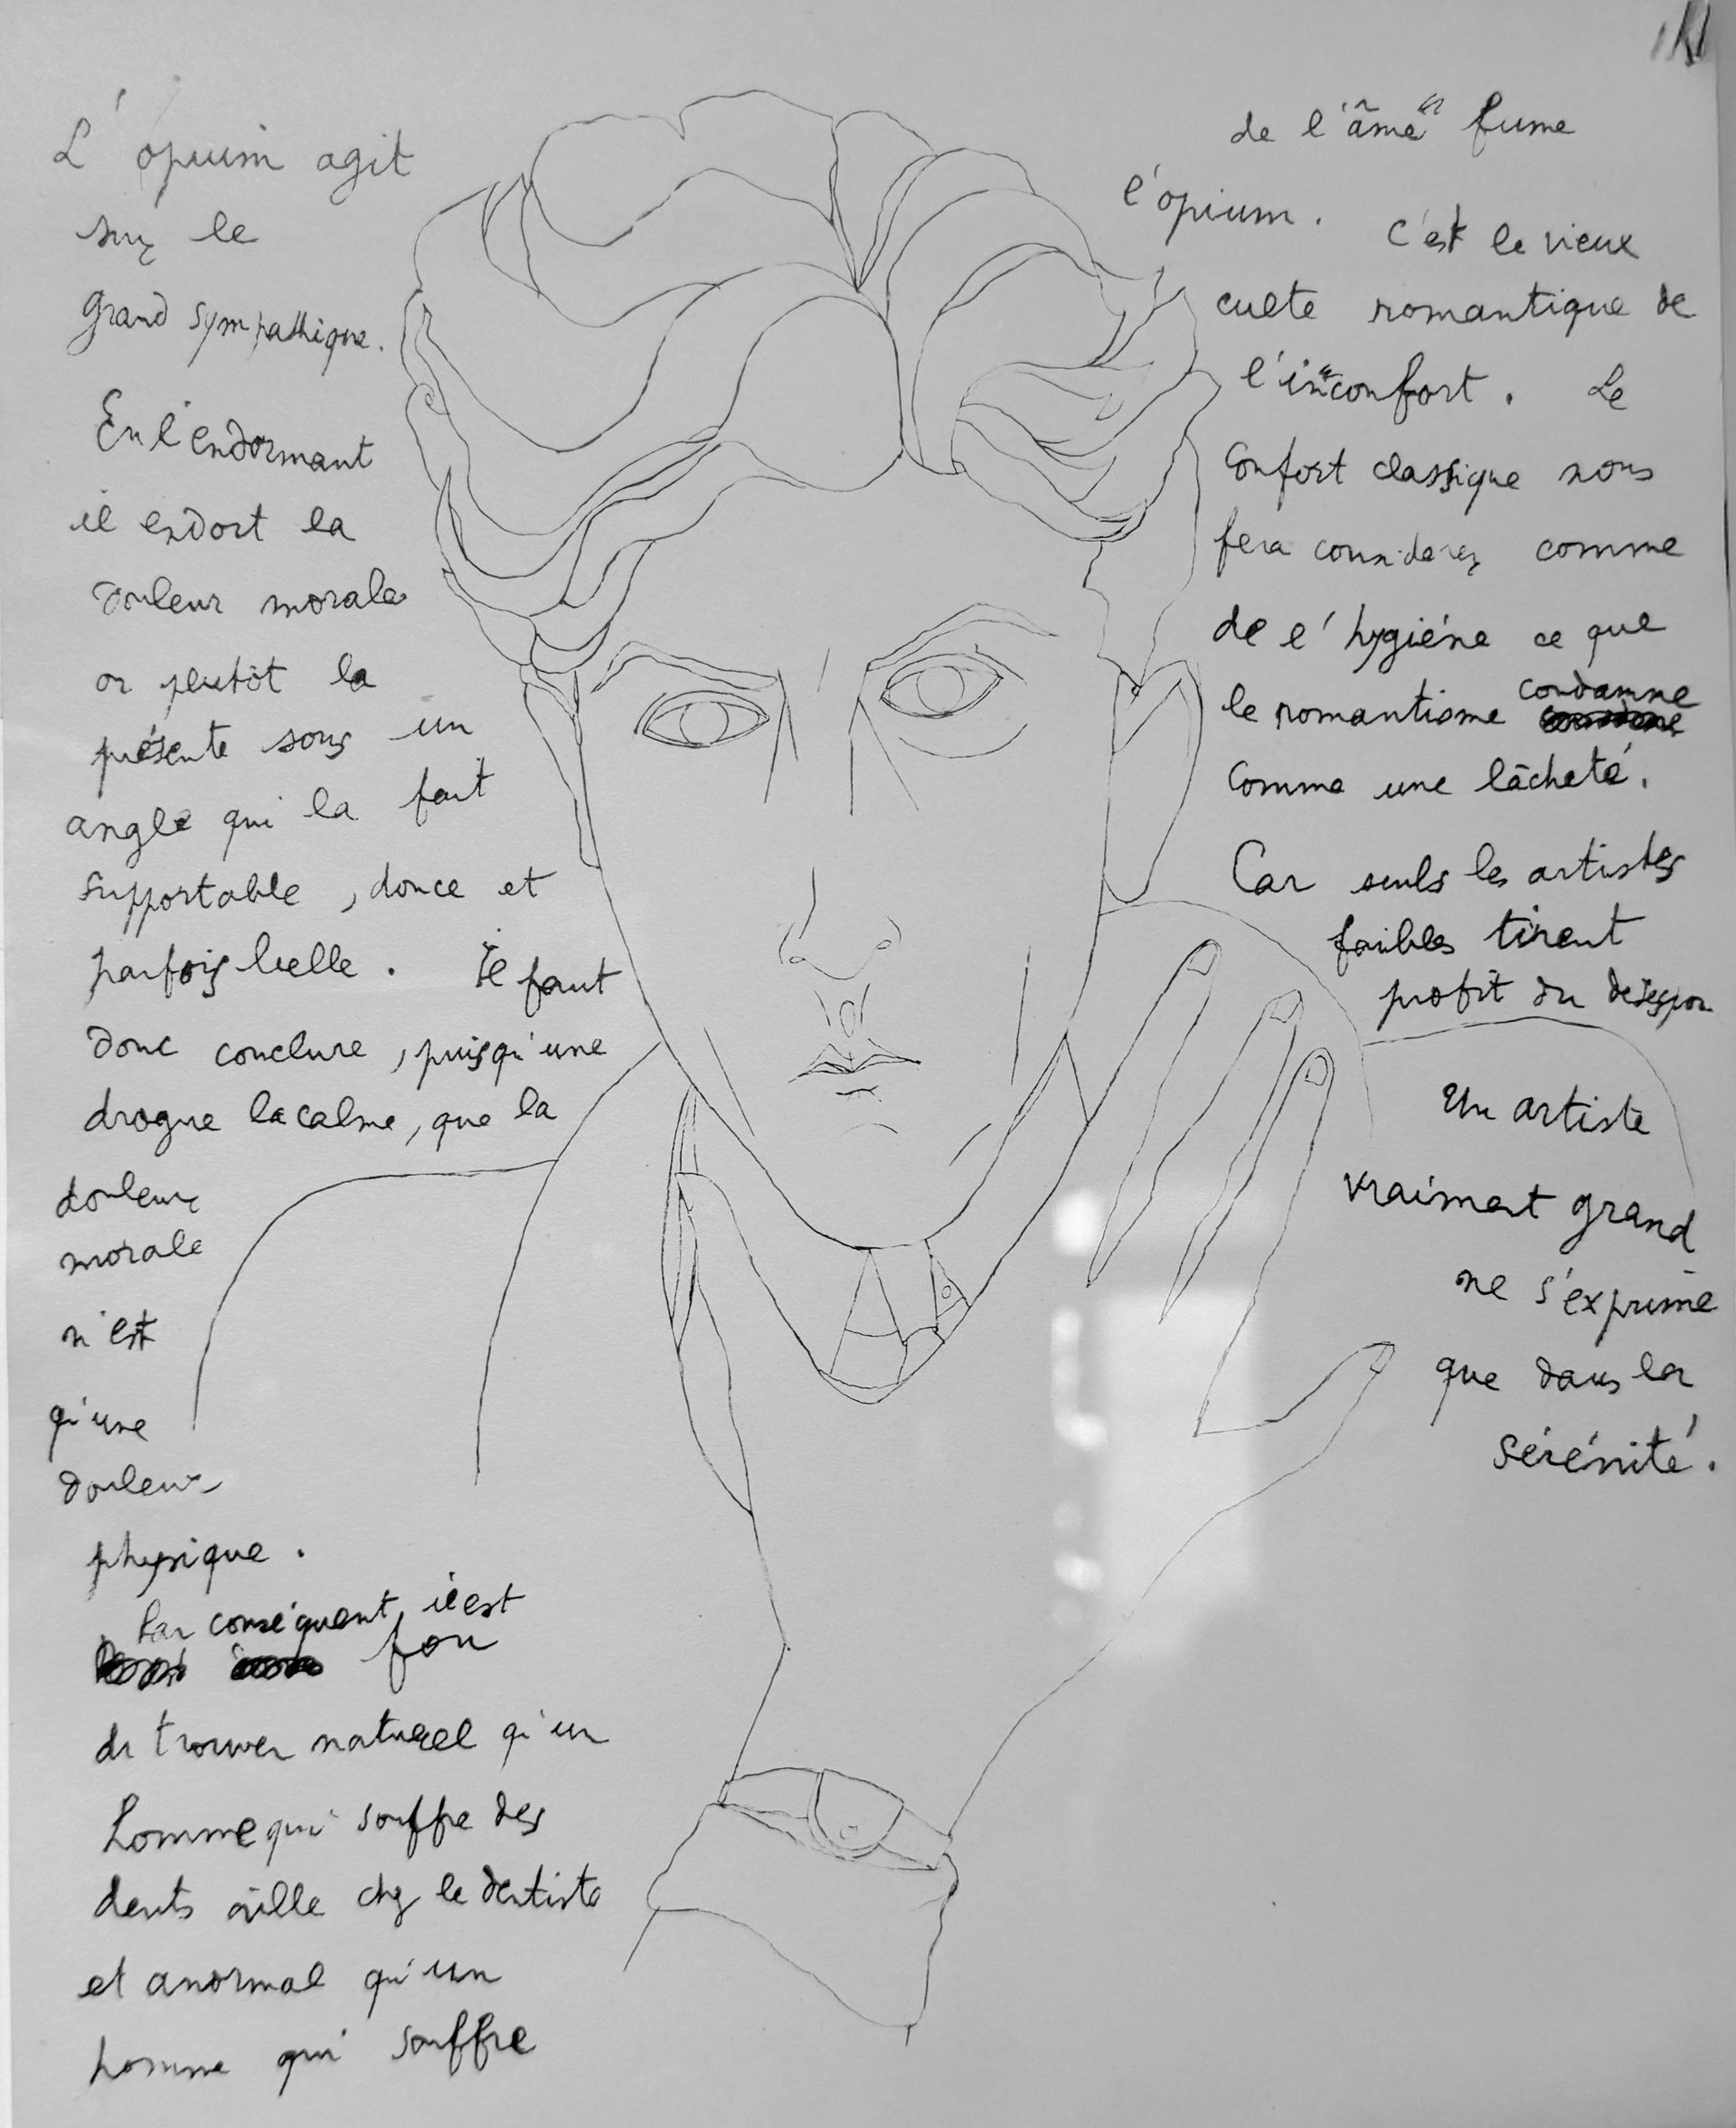 L'opium agit
sur le
grand sympathique.
En l'endormant
il endort la
douleur morale
ou plutôt la
présente sous un
angle qui la fait
supportable, douce et
parfois belle. Il faut
donc conclure, puisqu'une
drogue la calme, que la
douleur
morale
n'est
qu'une
douleur
physique.
Par conséquent, il est
fou
de trouver naturel qu'un
homme qui souffre des
dents aille chez le dentiste
et anormal qu'un
homme qui souffre
de l'"âme" fume
l'opium. C'est le vieux
culte romantique de
l'in"confort. Le
confort classique nous
fera considérer comme
de l'hygiéne ce que
condamne
le romantisme
comme une lâcheté.
Car seuls les artistes
faibles tirent
profit du désespoir
Un artiste
vraiment grand
ne s'exprime
que dans la
sérénité.